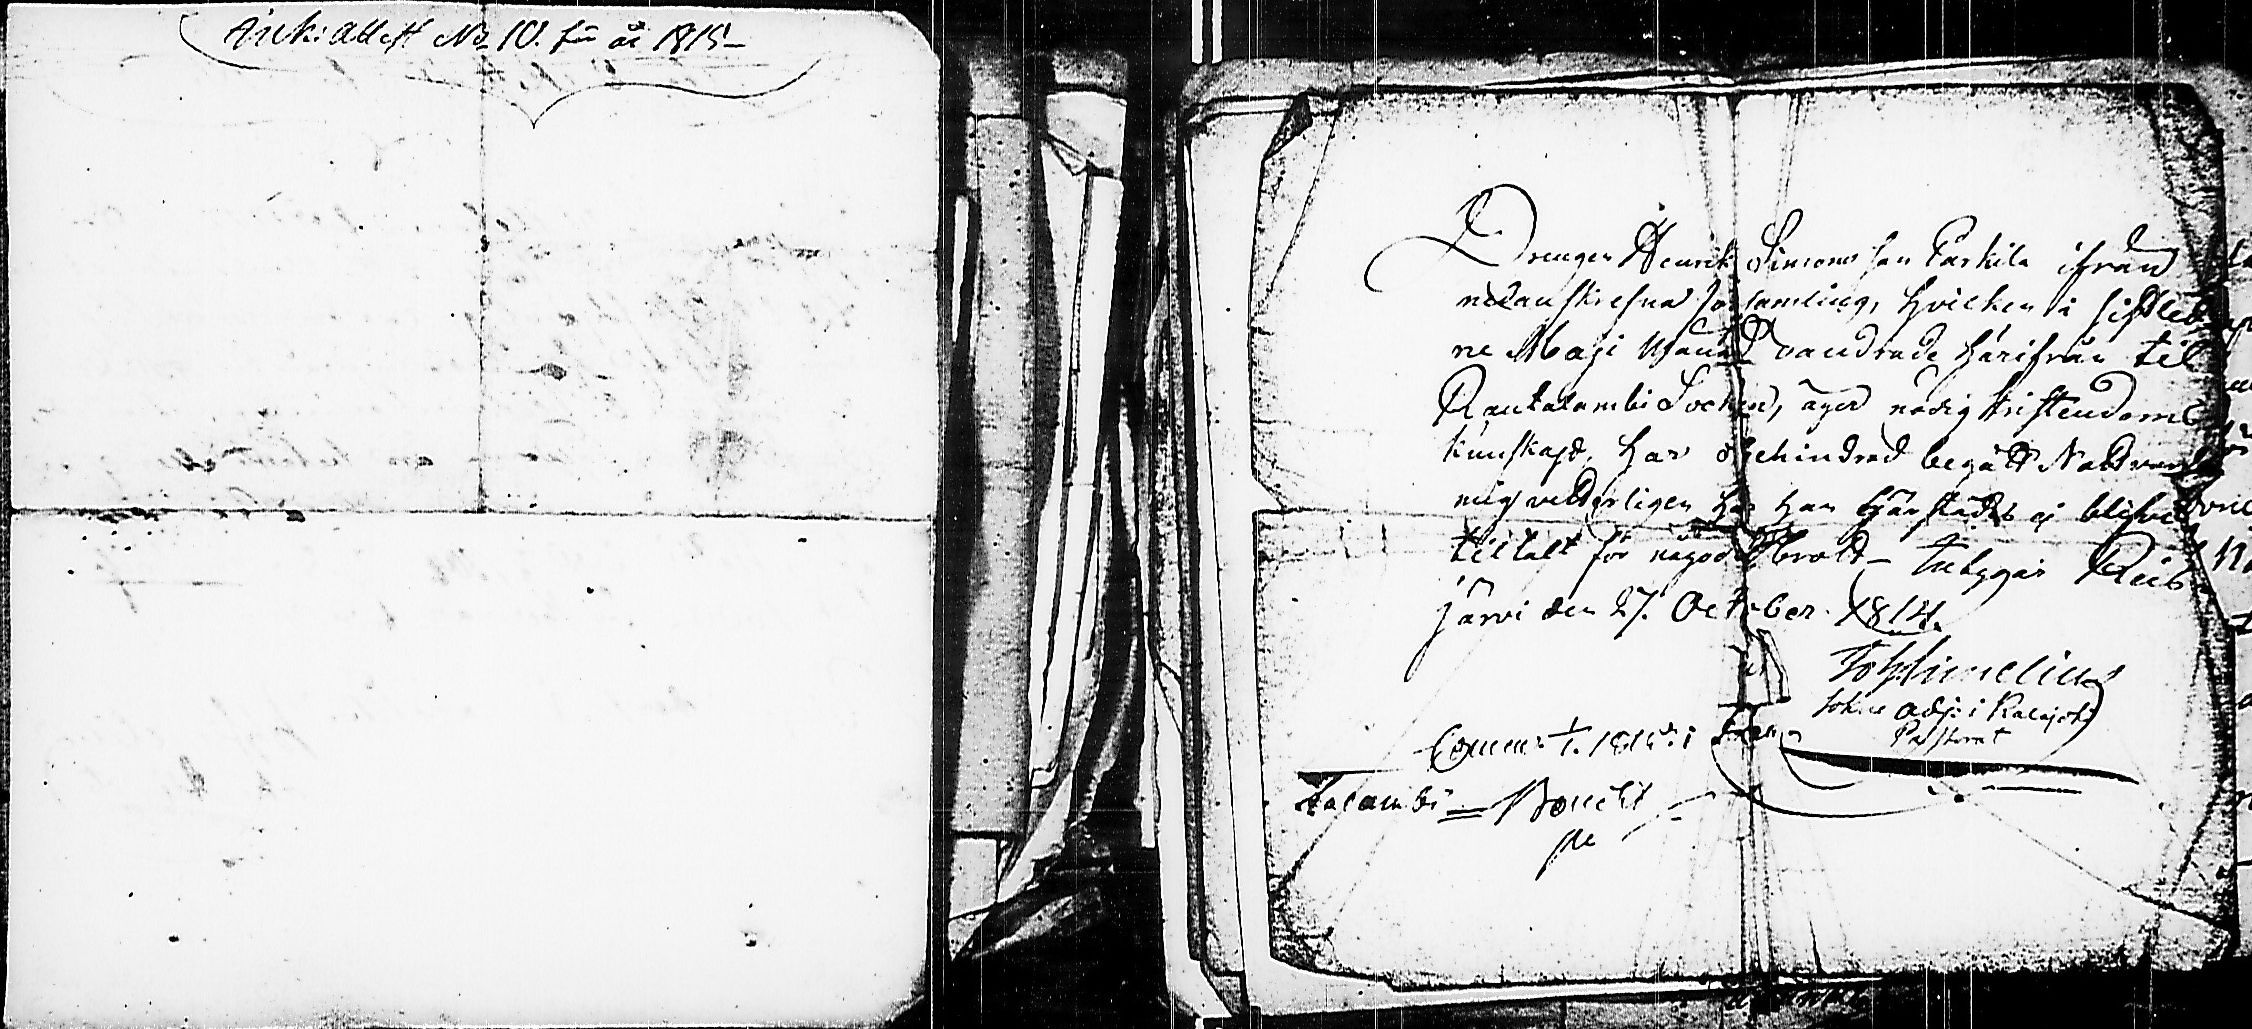 Attest No 10. för år 1815
Drengen Henrik Simonsson Parkila ifrån
nedanskrefna församling, hvilken i sistled
ne Maji Månad vandrade härifrån til
Rautalambi Socken, äger nödig Kristendoms
kunskap, har obehindrad begått Nattvarden
mig vetterligen har han härstädes ej blifvit
tiltalt för någodt brott intygar Reis
järvi den 27. October 1814.
Joh
Adj: i Kalajoki
Pastorat
1815 i
talambi